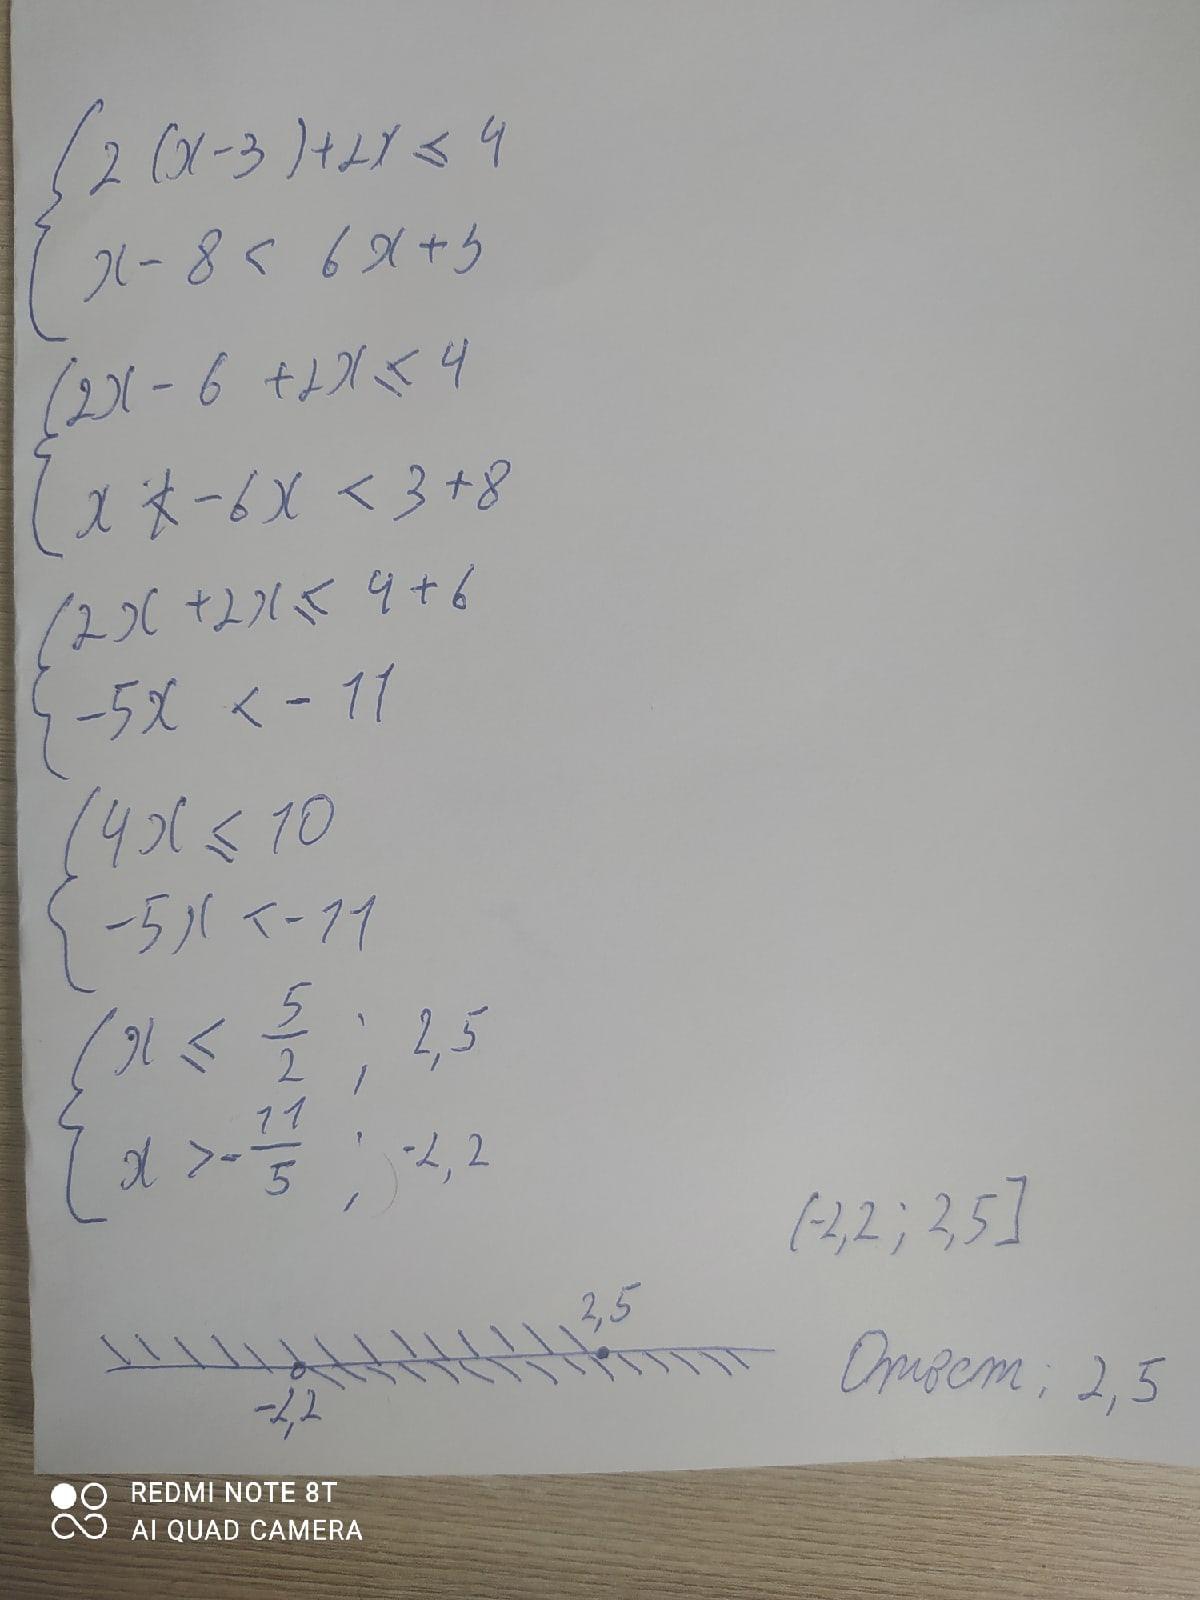 2(x-3)+2x ≤ 4
x - 8 < 6x + 3
2x - 6 + 2x ≤ 4
x - 6x < 3 + 8
2x + 2x ≤ 4 + 6
-5x < - 11
4x ≤ 10
-5x < - 11
x ≤ 5/2 ; 2,5
x > - 11/5 ; -2,2
(-2,2 ; 2,5]
2,5
-2,2
Ответ: 2,5
REDMI NOTE 8T
AI QUAD CAMERA